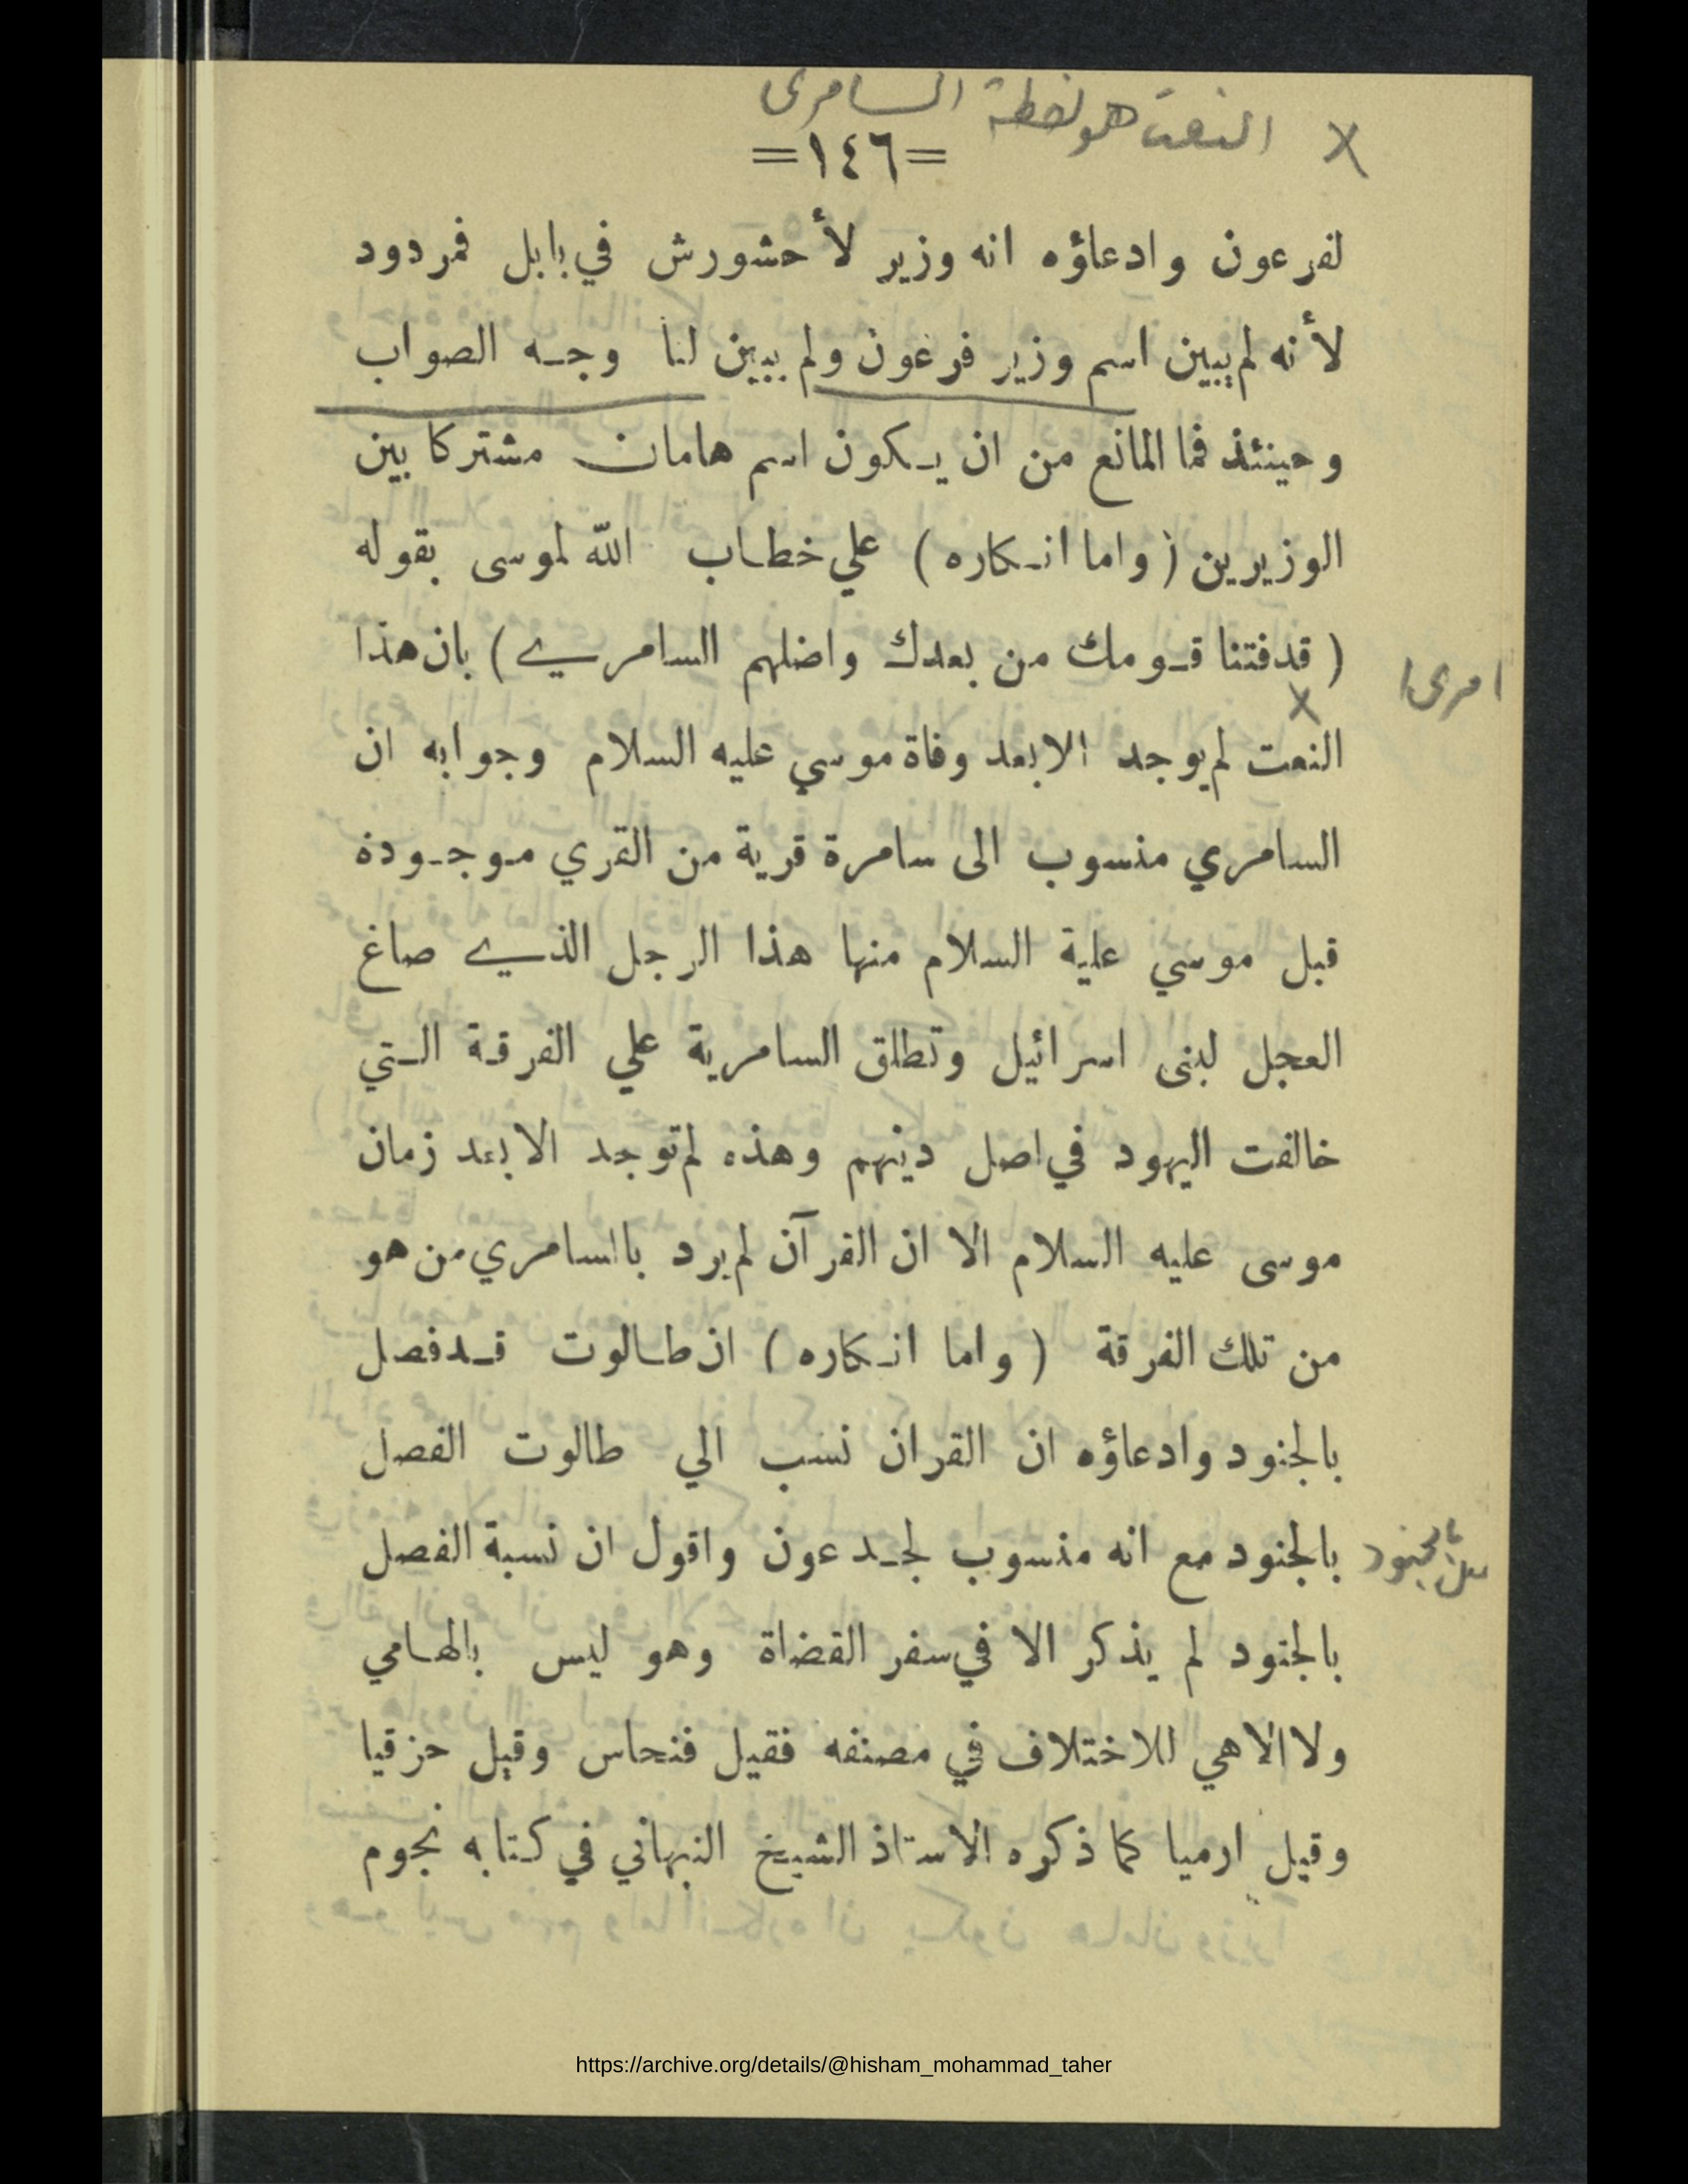 x النعت هو لفظة السامرى
=١٤٦=
لفرعون وادعاؤه انه وزير لأحشورش في بابل فمردود
لأنه لم يبين اسم وزير فرعون ولم يبين لنا وجه الصواب
وحينئذ فما المانع من ان يكون اسم هامان مشتركا بين
الوزيرين (واما انكاره) علي خطاب الله لموسى بقوله
(قد فتنا قومك من بعدك واضلهم السامري) بان هذا
امرى
x
النعت لم يوجد الا بعد وفاة موسي عليه السلام وجوابه ان
السامري منسوب الى سامرة قرية من القري موجودة
قبل موسي علية السلام منها هذا الرجل الذي صاغ
العجل لبنى اسرائيل وتطلق السامرية علي الفرقة التي
خالفت اليهود في اصل دينهم وهذه لم توجد الا بعد زمان
موسى عليه السلام الا ان القرآن لم يرد بالسامري من هو
من تلك الفرقة (واما انكاره) ان طالوت قد فصل
بالجنود وادعاؤه ان القران نسب الي طالوت الفصل
بالجنود مع انه منسوب لجدعون واقول ان نسبة الفصل
بالجنود
بالجنود لم يذكر الا في سفر القضاة وهو ليس بالهامي
ولا الاهي للاختلاف في مصنفه فقيل فنحاس وقيل حزقيا
وقيل ارميا كما ذكره الاستاذ الشيخ النبهاني في كتابه نجوم
https://archive.org/details/@hisham_mohammad_taher